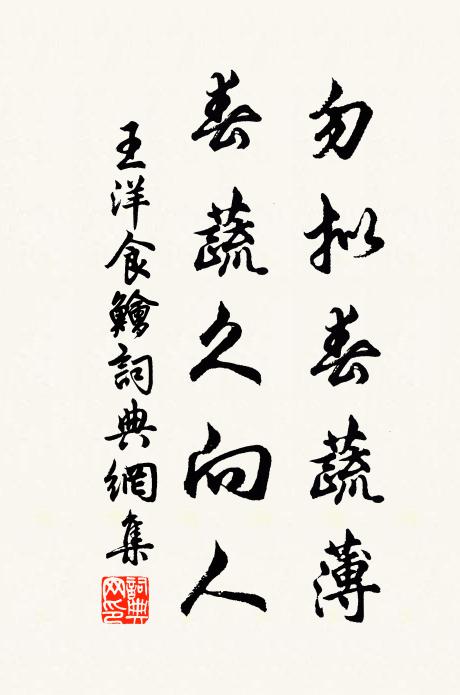 勿拟春蔬薄
春蔬久向人
王洋食鱠詞典網集
詞典网印